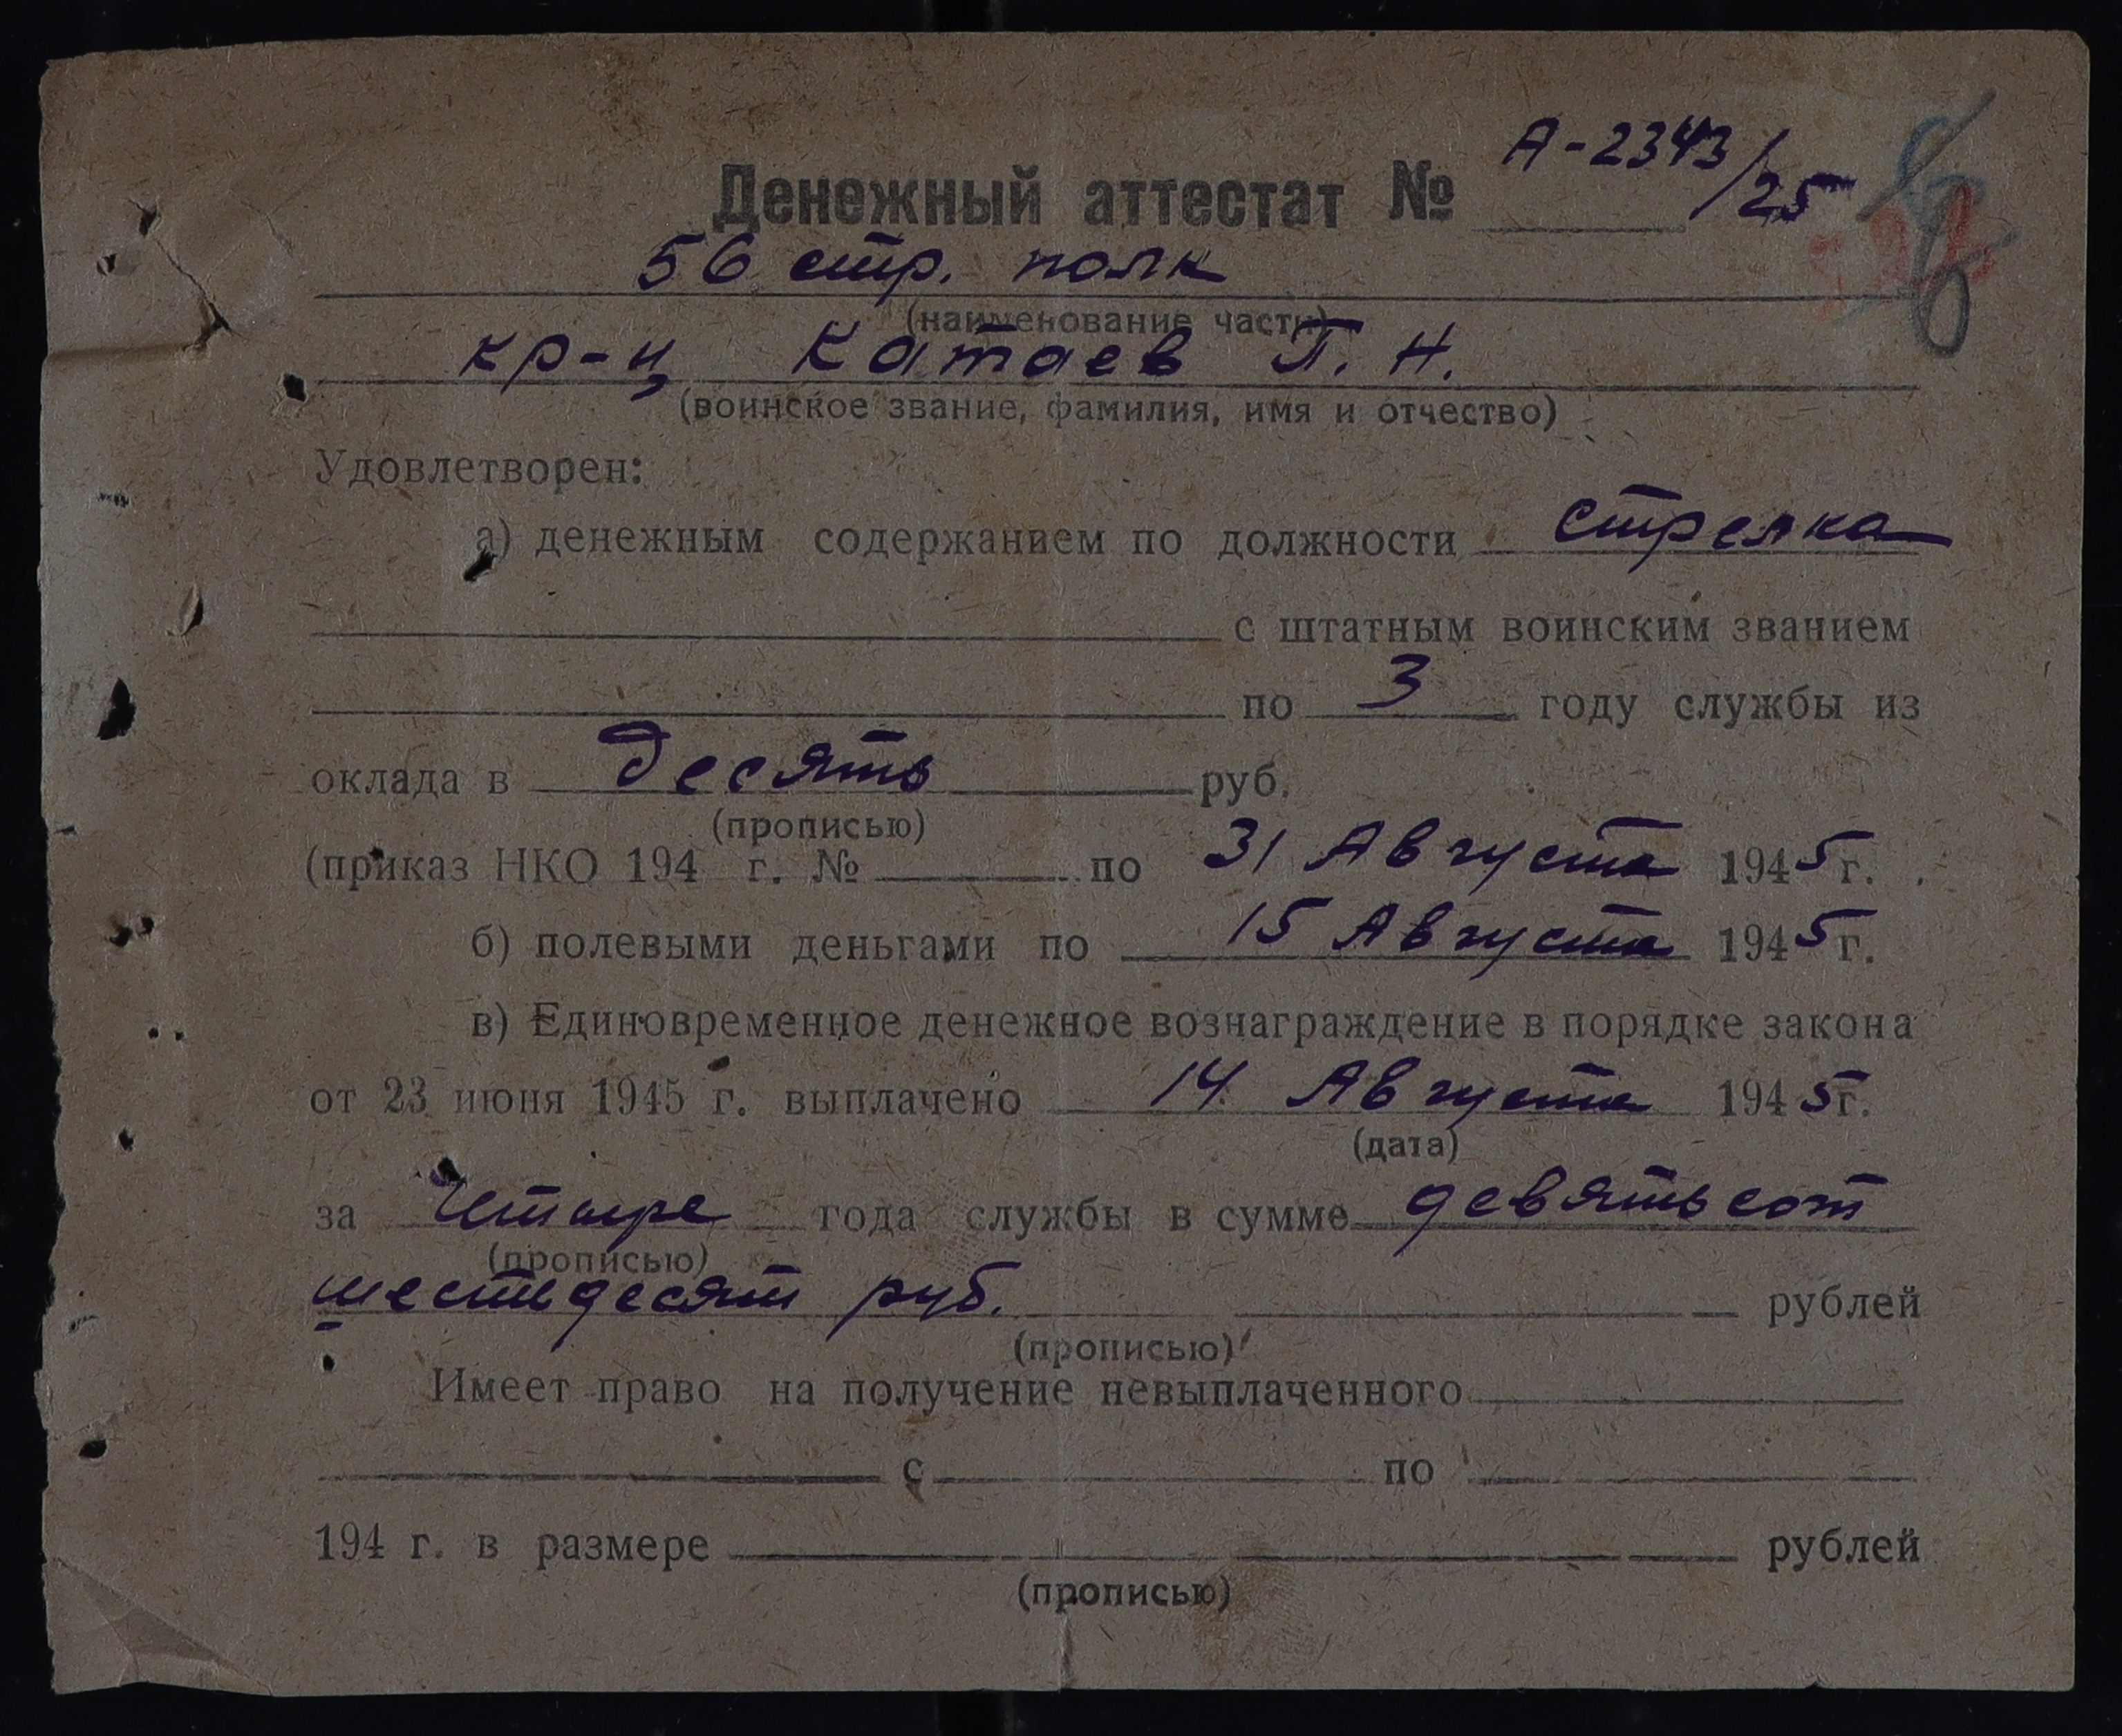 Денежный аттестат № А-2343/25
56 стр. полк
(наименование части)
кр-ц Катаев П. Н.
(воинское звание, фамилия, имя и отчество)
Удовлетворен:
а) денежным содержанием по должности стрелка
с штатным воинским званием
по 3 году службы из
оклада в десять руб.
(прописью)
(приказ НКО 194 г. № по 31 Августа 1945 г.
б) полевыми деньгами по 15 Августа 1945 г.
в) Единовременное денежное вознаграждение в порядке закона
от 23 июня 1945 г. выплачено 14 Августа 1945 г.
(дата)
за Четыре года службы в сумме девятьсот
(прописью)
шестьдесят руб. рублей
(прописью)
Имеет право на получение невыплаченного
с по
194 г. в размере рублей
(прописью)